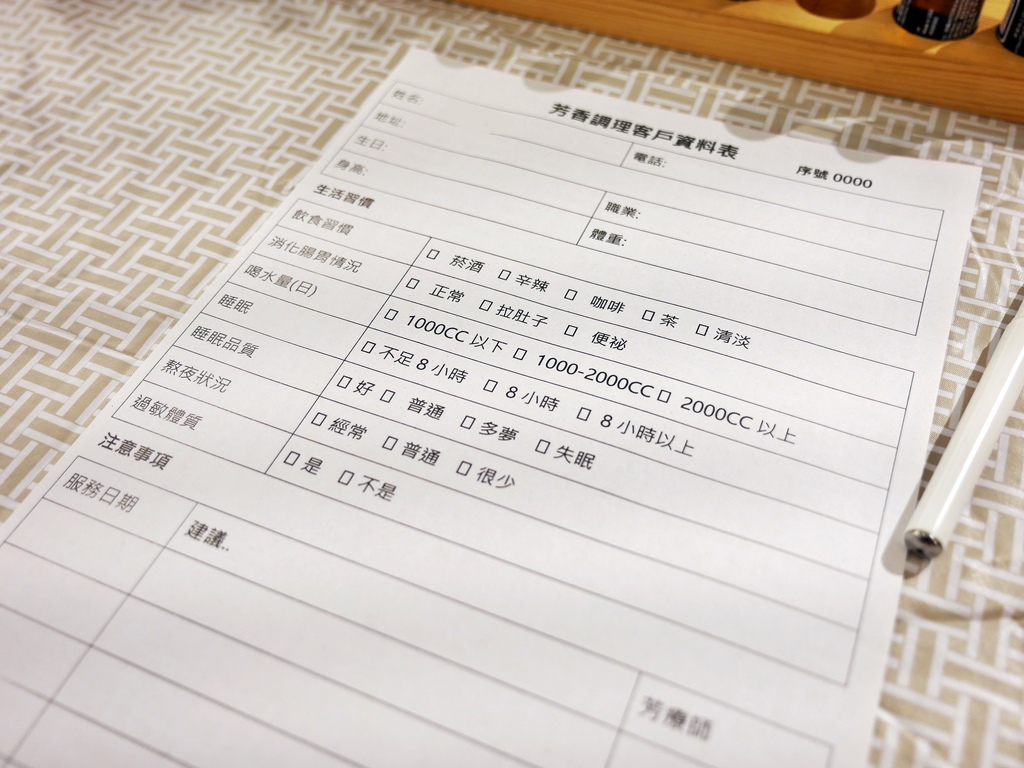 芳香調理客戶資料表 序號 0000
姓名: 電話:
地址:
生日: 職業:
身高: 體重:
生活習慣
飲食習慣 □ 菸酒 □ 辛辣 □ 咖啡 □ 茶 □ 清淡
消化腸胃情況 □ 正常 □ 拉肚子 □ 便祕
喝水量(日) □ 1000CC 以下 □ 1000-2000CC □ 2000CC 以上
睡眠 □ 不足 8 小時 □ 8 小時 □ 8 小時以上
睡眠品質 □ 好 □ 普通 □ 多夢 □ 失眠
熬夜狀況 □ 經常 □ 普通 □ 很少
過敏體質 □ 是 □ 不是
注意事項
服務日期 建議.. 芳療師